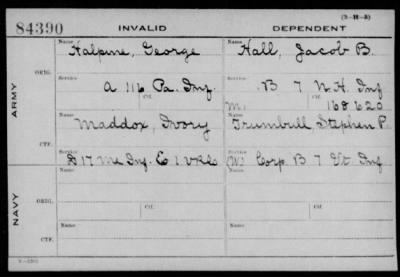 (3-H-5)
84390 INVALID DEPENDENT
Name Halpine, George Name Hall, Jacob B.
ORIG.
Service A 116 Pa. Inf. Service B 7 N.H. Inf
Ctf.
M. 168620
ARMY
Name Maddox, Ivory Name Trumbull Stephen P.
CTF.
Service D 17 Me Inf. E 1 VRC Service (W) Corp. B 7 Vt. Inf
Name Name
ORIG.
NAVY
Ctf. Ctf.
CTF.
Name Name